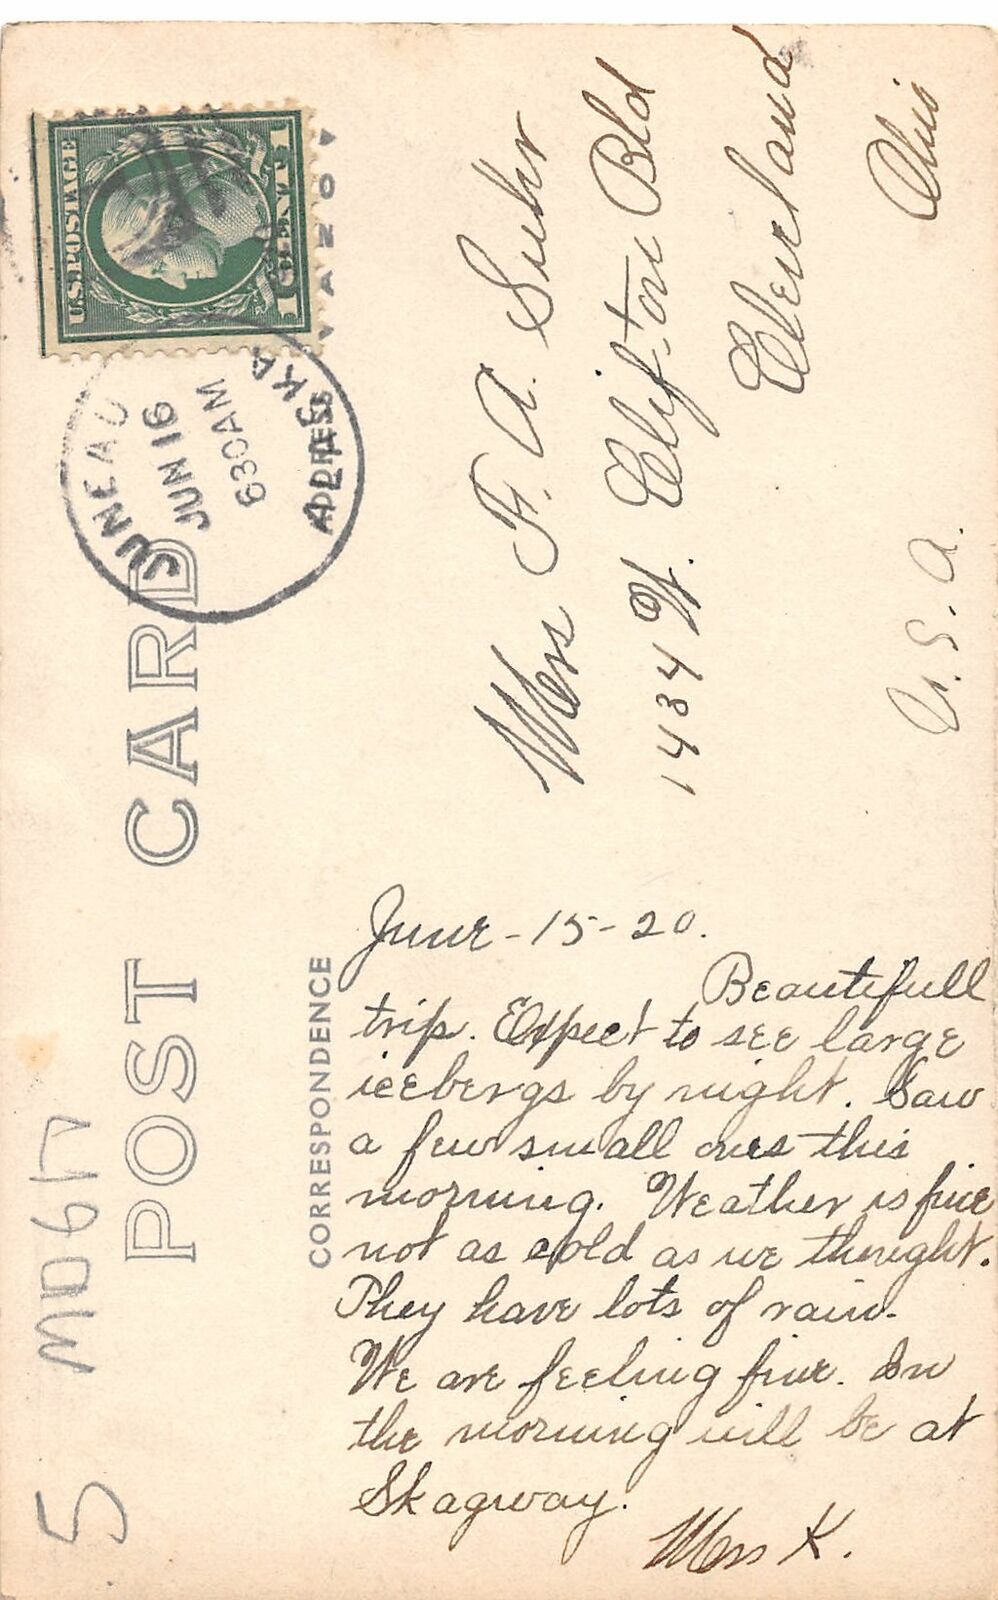 U.S. POSTAGE
1 CENT 1
JUNEAU
JUN 16
630 AM
ALASKA
POST CARD
ADDRESS
CORRESPONDENCE
Mrs F. A. Suhr
1434 W. Clifton Bld
Cleveland
Ohio
U.S.A.
June-15-20.
Beautifull
trip. Expect to see large
icebergs by night. Saw
a few small ones this
morning. Weather is fine
not as cold as we thought.
They have lots of rain.
We are feeling fine. In
the morning will be at
Skagway.
Mrs K.